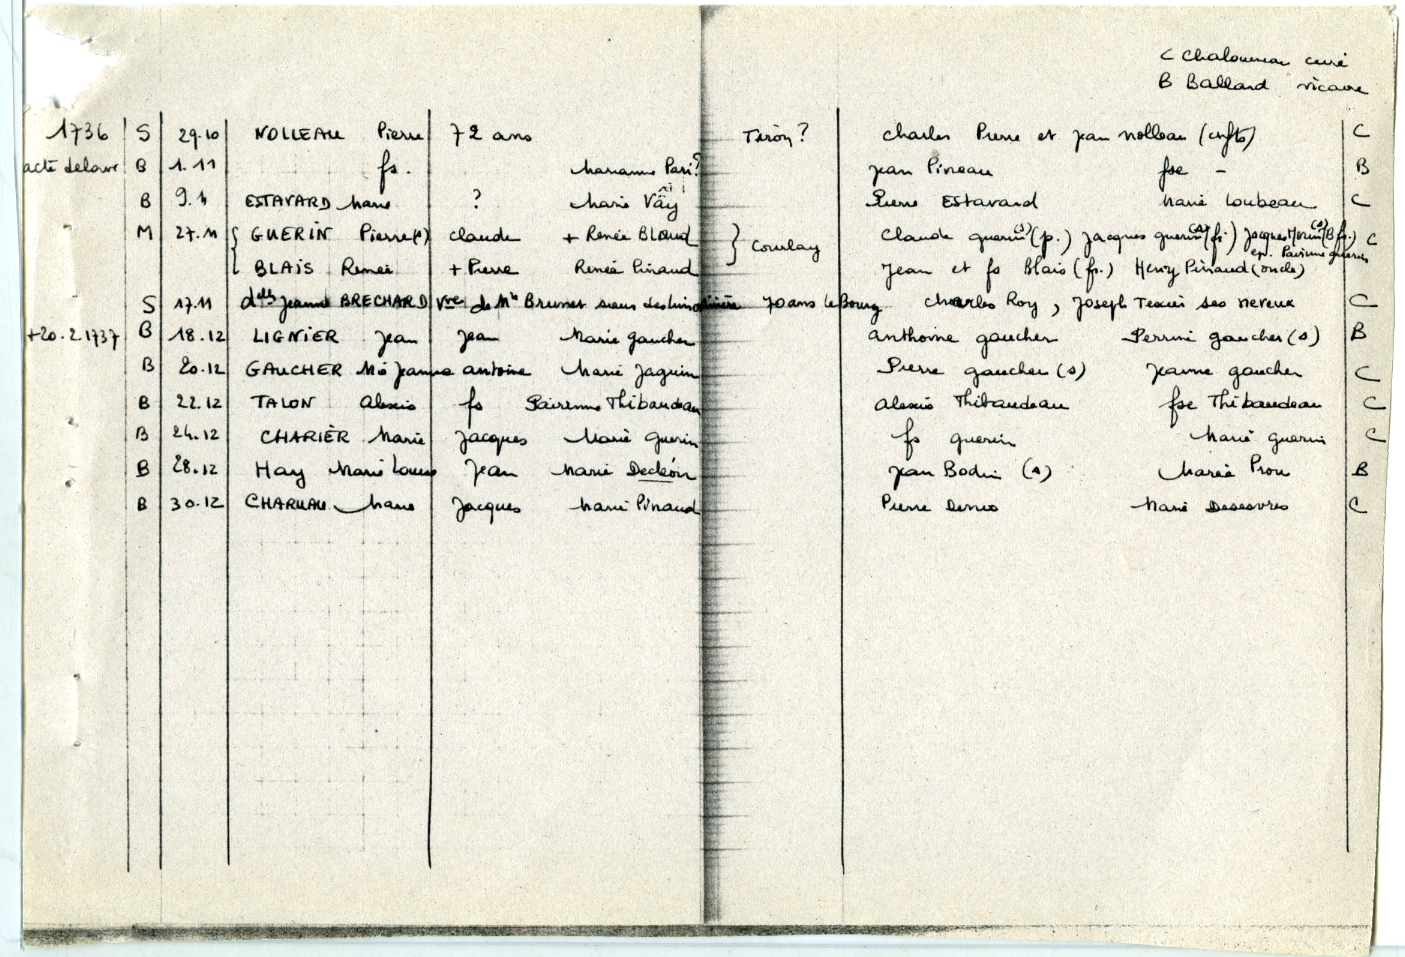 C Chaloumeau curé
B Ballard vicaire
1736 S 29.10 NOLLEAU Pierre 72 ans Tirón? Charles Pierre et Jean Nolleau (enfts) C
acte delavé B 1.11 fs. Marianne Pari? Jean Pineau fse - B
B 9.11 ESTAVARD Marie ? Marie Väy Pierre Estavard Marie Loubeau C
M 27.11 { GUERIN Pierre(s) Claude + Renée Bloud } Courlay Claude Guerin(s)(p.) Jacques Guerin(s)(fr.) Jacques Morin(s)(Bfr.) C
ep. Pairinne Guerin
BLAIS Renée + Pierre Renée Pinaud Jean et fs Blais (fr.) Henry Pinaud (oncle)
S 17.11 delle Jeanne BRECHARD Vve de Mre Brunet sieur des 70 ans le Bourg Charles Roy, Joseph Texier ses neveux C
+20.2.1737 B 18.12 LIGNIER Jean Jean Marie Gaucher Anthoine Gaucher Perrine Gaucher (s) B
B 20.12 GAUCHER Mie Jeanne Antoine Marie Jaquin Pierre Gaucher (s) Jeanne Gaucher C
B 22.12 TALON Alexis fs Pairinne Thibaudeau Alexis Thibaudeau fse Thibaudeau C
B 24.12 CHARIER Marie Jacques Marie Guerin fs Guerin Marie Guerin C
B 28.12 Hay Marie Louise Jean Marie Decléon Jean Bodin (s) Marie Prou B
B 30.12 CHARUAU Marie Jacques Marie Pinaud Pierre Marie Desevres C